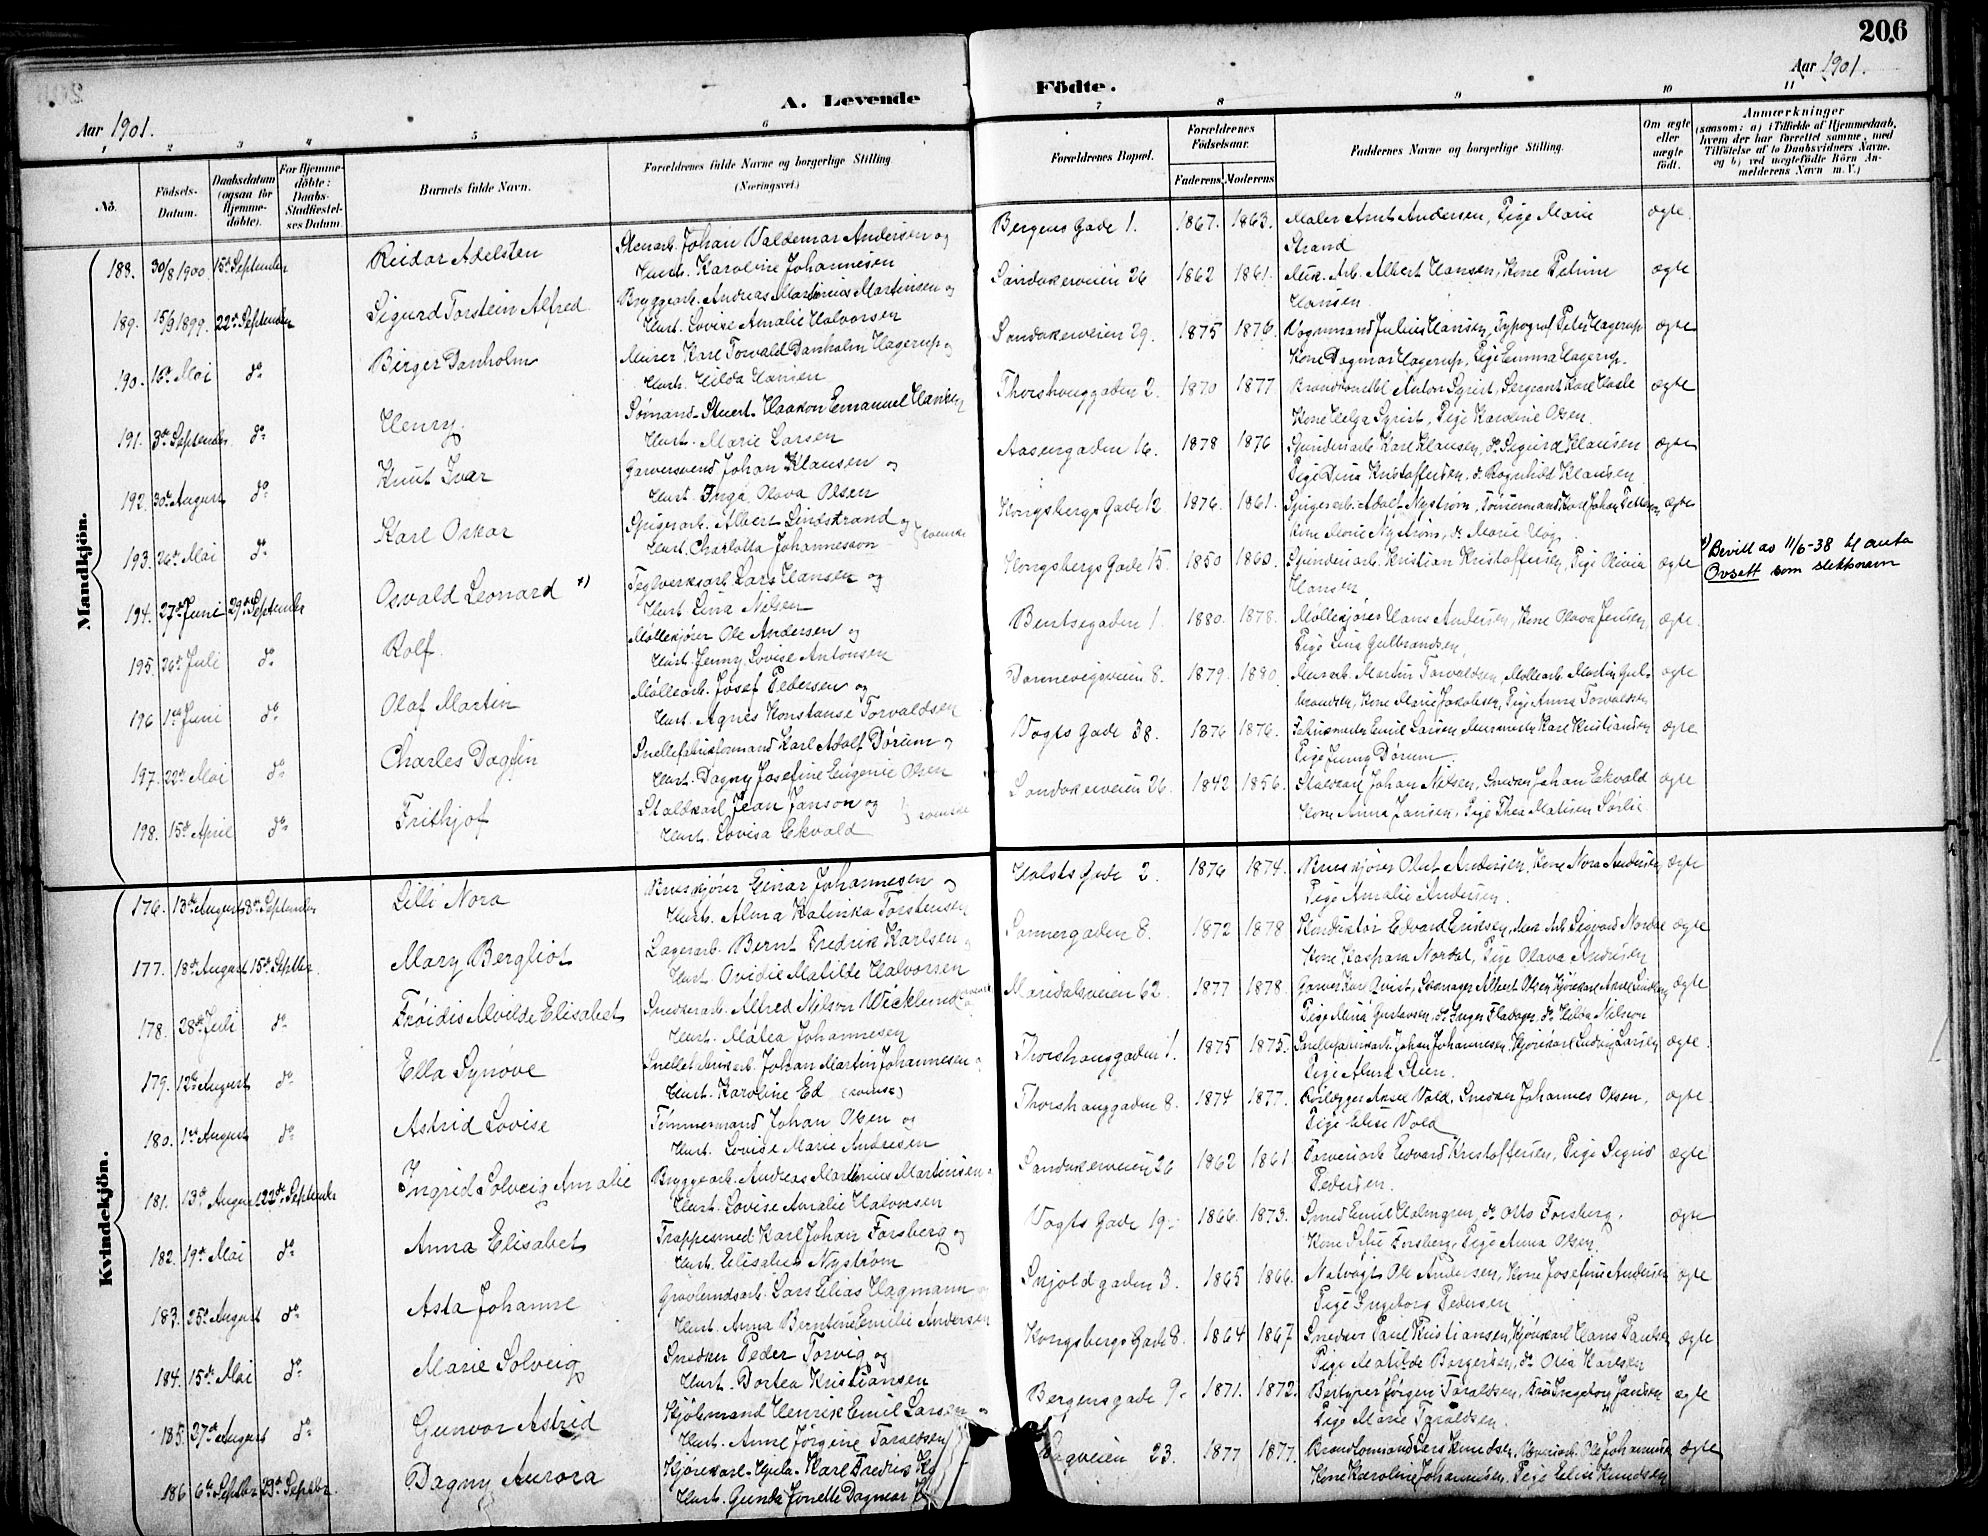 206
Aar 1901.
Aar 1901.
A. Levende
Födte.
1 2 3 4 5 6
7 8 9 10 11
No.
Födsels-Datum.
Daabsdatum (ogsaa for Hjemme-döbte).
For Hjemme-döbte: Daabs-Stadfæstel-ses Datum.
Barnets fulde Navn.
Forældrenes fulde Navne og borgerlige Stilling
(Næringsvei.)
Forældrenes Bopæl.
Forældrenes Födselsaar.
Faderens Moderens
Faddernes Navne og borgerlige Stilling.
Om ægte eller uægte födt.
Anmærkninger
(saasom: a) i Tilfælde af Hjemmedaab, hvem der har forrettet samme, med Tilföielse af to Daabsvidners Navne, og b) ved uægtefödte Börn An-melderens Navn m. V.)
Mandkjön.
188. 30/8 1900. 15de September Reidar Adelsten Stenarb. Johan Valdemar Andersen og
Hust. Karoline Johannesen
Bergens Gade 1. 1867. 1863. Maler Arnt Andersen, Pige Marie
Strand
ægte.
189. 15/9 1899. 22de September Sigurd Torstein Alfred. Bryggearb. Andreas Martinius Martinsen og
Hust. Lovise Amalie Halvorsen
Sandakerveien 26 1862 1861. Mek. Arb. Albert Hansen, Kone Petrine
Hansen.
ægte
190. 16de Mai do Birger Danholm Murer Karl Torvald Danholm Hagerup og
Hust. Hilda Hansen
Sandakerveien 29. 1875 1876. Vognmand Julius Hansen, Typograf Peter Hagerup
Kone Dagmar Hagerup, Pige Emma Hagerup.
ægte
191. 3de September do Henry. Sømand-Stuert-Haakon Emanuel Hansen
Hust. Marie Larsen
Thorshauggaden 2. 1870 1877 Anton Syrist, Sergeant Karl Hasle
Kone Helga Syrist, Pige Karoline Olsen.
ægte
192. 30te August do Knut Ivar Garversvend Johan Klausen og
Hust. Inga Olava Olsen
Aasengaden 16. 1878 1876 Spinderiarb. Karl Klausen, do Sigurd Klausen
Pige Dina Kristoffersen, do Ragnhild Klausen
ægte
193. 26de Mai do Karl Oskar Spigerarb. Albert Lindstrand og
Hust. Charlotta Johannesson
svenske
Kongsbergs Gade 12 1876. 1861. Spigerarb. Adolf Nystrøm, Tømmermand Karl Johan
Kone Marie Nystrøm, do Marie
ægte
194. 27de Juni 29de September Osvald Leonard x) Teglverksarb. Lars Hansen og
Hust. Lina Nilsen
Kongsbergs Gade 15. 1850 1860. Spinderiarb. Kristian Kristoffersen, Pige Olivia
Hansen
ægte
x) Bevill av 11/6-38 til anta
Ovsett som slektsnavn
195. 26de Juli do Rolf. Møllekjører Ole Andersen og
Hust. Jenny Lovise Antonsen
Bentsegaden 1. 1880. 1878. Møllekjører Hans Andersen, Kone Olava Jensen,
Pige Lina Gulbrandsen.
ægte.
196 1ste Juni do Olaf Martin Møllearb. Josef Pedersen og
Hust. Agnes Konstanse Torvaldsen
Dannevigsveien 8. 1879. 1880. Murarb. Martin Torvaldsen, Møllearb. Martin Gul-
brandsen, Kone Marie Jakobsen, Pige Anna Torvaldsen
ægte
197. 22de Mai do Charles Dagfin Snellefabrikformand Karl Adolf Dørum og
Hust. Dagny Josefine Eugenie Olsen
Vogts Gade 38. 1876 1876. Emil Larsen, Murmester Karl Kristiansen
Pige Jenny Dørum.
ægte
198. 15de April do Frithjof Staldkarl Jean Janson og
Hust. Lovisa Ekvald
svenske
Sandakerveien 26. 1842 1856. Staldkarl Johan Nilsen, Snedker Johan Ekvald
Kone Anna Jansen, Pige Thea Matisen Sørlie
ægte
Kvindekjön.
176. 13de August 8de September Lilli Nora Bruskjører Einar Johannesen og
Hust. Alma Katinka Torstensen
Holsts Gade 2. 1876 1874. Bruskjører Olut Andersen, Kone Nora Andersen
Pige Amalie Andersen.
ægte
177. 18de August 15de Septbr. Mary Bergliot Lagerarb. Bernt Fredrik Karlsen og
Hust. Ovidie Matilde Halvorsen
Sannergaden 8. 1872 1878 Konduktør Edvard Eriksen, Mek. Arb. Sigvard Nordal
Kone Kaspara Nordal, Pige Olava Andresen
ægte
178. 28de Juli do Frøidis Alvilde Elisabet Snedkerarb. Alfred Nilson Wicklund
Hust. Matea Johannesen
Maridalsveien 62. 1877 1878. Garver Karl Qvist, Skomager Albert Olsen, Kjørekarl
Pige Mina Gustavsen, do Inger Fladager, do Hilda Nilson
ægte
179. 12te August do Ella Synøve Snellefabrikarb. Johan Martin Johannesen og
Hust. Karoline Ed (svensk)
Thorshauggaden 1. 1875 1875. Snellefabrikarb. Johan Johannesen. Kjørekarl Ludvig Larsen
Pige Alma Sten.
ægte.
180. 1ste August do Astrid Lovise Tømmermand Johan Olsen og
Hust. Lovise Marie Andresen
Thorshauggaden 8. 1874 1877. Rørlægger Aksel Vold, Snedker Johannes Olsen,
Pige Elise Vold
ægte.
181. 13de August 22de September Ingrid Solveig Amalie Bryggearb. Andreas Martinius Martinsen
Hust. Lovise Amalie Halvorsen
Sandakerveien 26 1862 1861 Farveriarb. Edvard Kristoffersen, Pige Signe
Pedersen.
ægte
182. 19de Mai do Anna Elisabet Trappesmed Karl Johan Forsberg og
Hust. Elisabet Nystrøm
Vogts Gade 19. 1866. 1873. Smed Emil Holmgren, do Otto Forsberg.
Kone Sofie Forsberg, Pige Anna Olsen.
ægte
183. 25de August do Asta Johanne Grovlændsarb. Lars Elias Hagmann og
Hust. Anna Berntine Emilie Andersen
Skjoldgaden 3. 1865 1866. Natvægt. Ole Andersen, Kone Josefine Andersen
Pige Ingeborg Pedersen
ægte
184. 15de Mai do Marie Solveig Snedker Peder Torvig og
Hust. Dortea Kristiansen
Kongsbergs Gade 8. 1864 1867 Snedker Paul Kristiansen, Kjørekarl Hans Paulsen
Pige Matilde Borgersen, do Olia Karlsen
ægte
185. 27de August do Gunvor Astrid Kjøbmand Henrik Emil Larsen og
Hust. Anne Jørgine Taraldsen
Bergensgade 9. 1871. 1872. Jørgen Taraldsen, Frk. Ingeborg Jansen
Pige Marie Taraldsen.
ægte
186 6te Septbr. 29de Septbr. Dagny Aurora Kjørekarl-Hjula-Karl Fredrik
Hust. Gunda Jonette Dagmar
23. 1877 1877. Brandkonst. Lars Knudsen, Ole Johannesen
Kone Karoline Johannesen, Pige Elise Knudsen
ægte